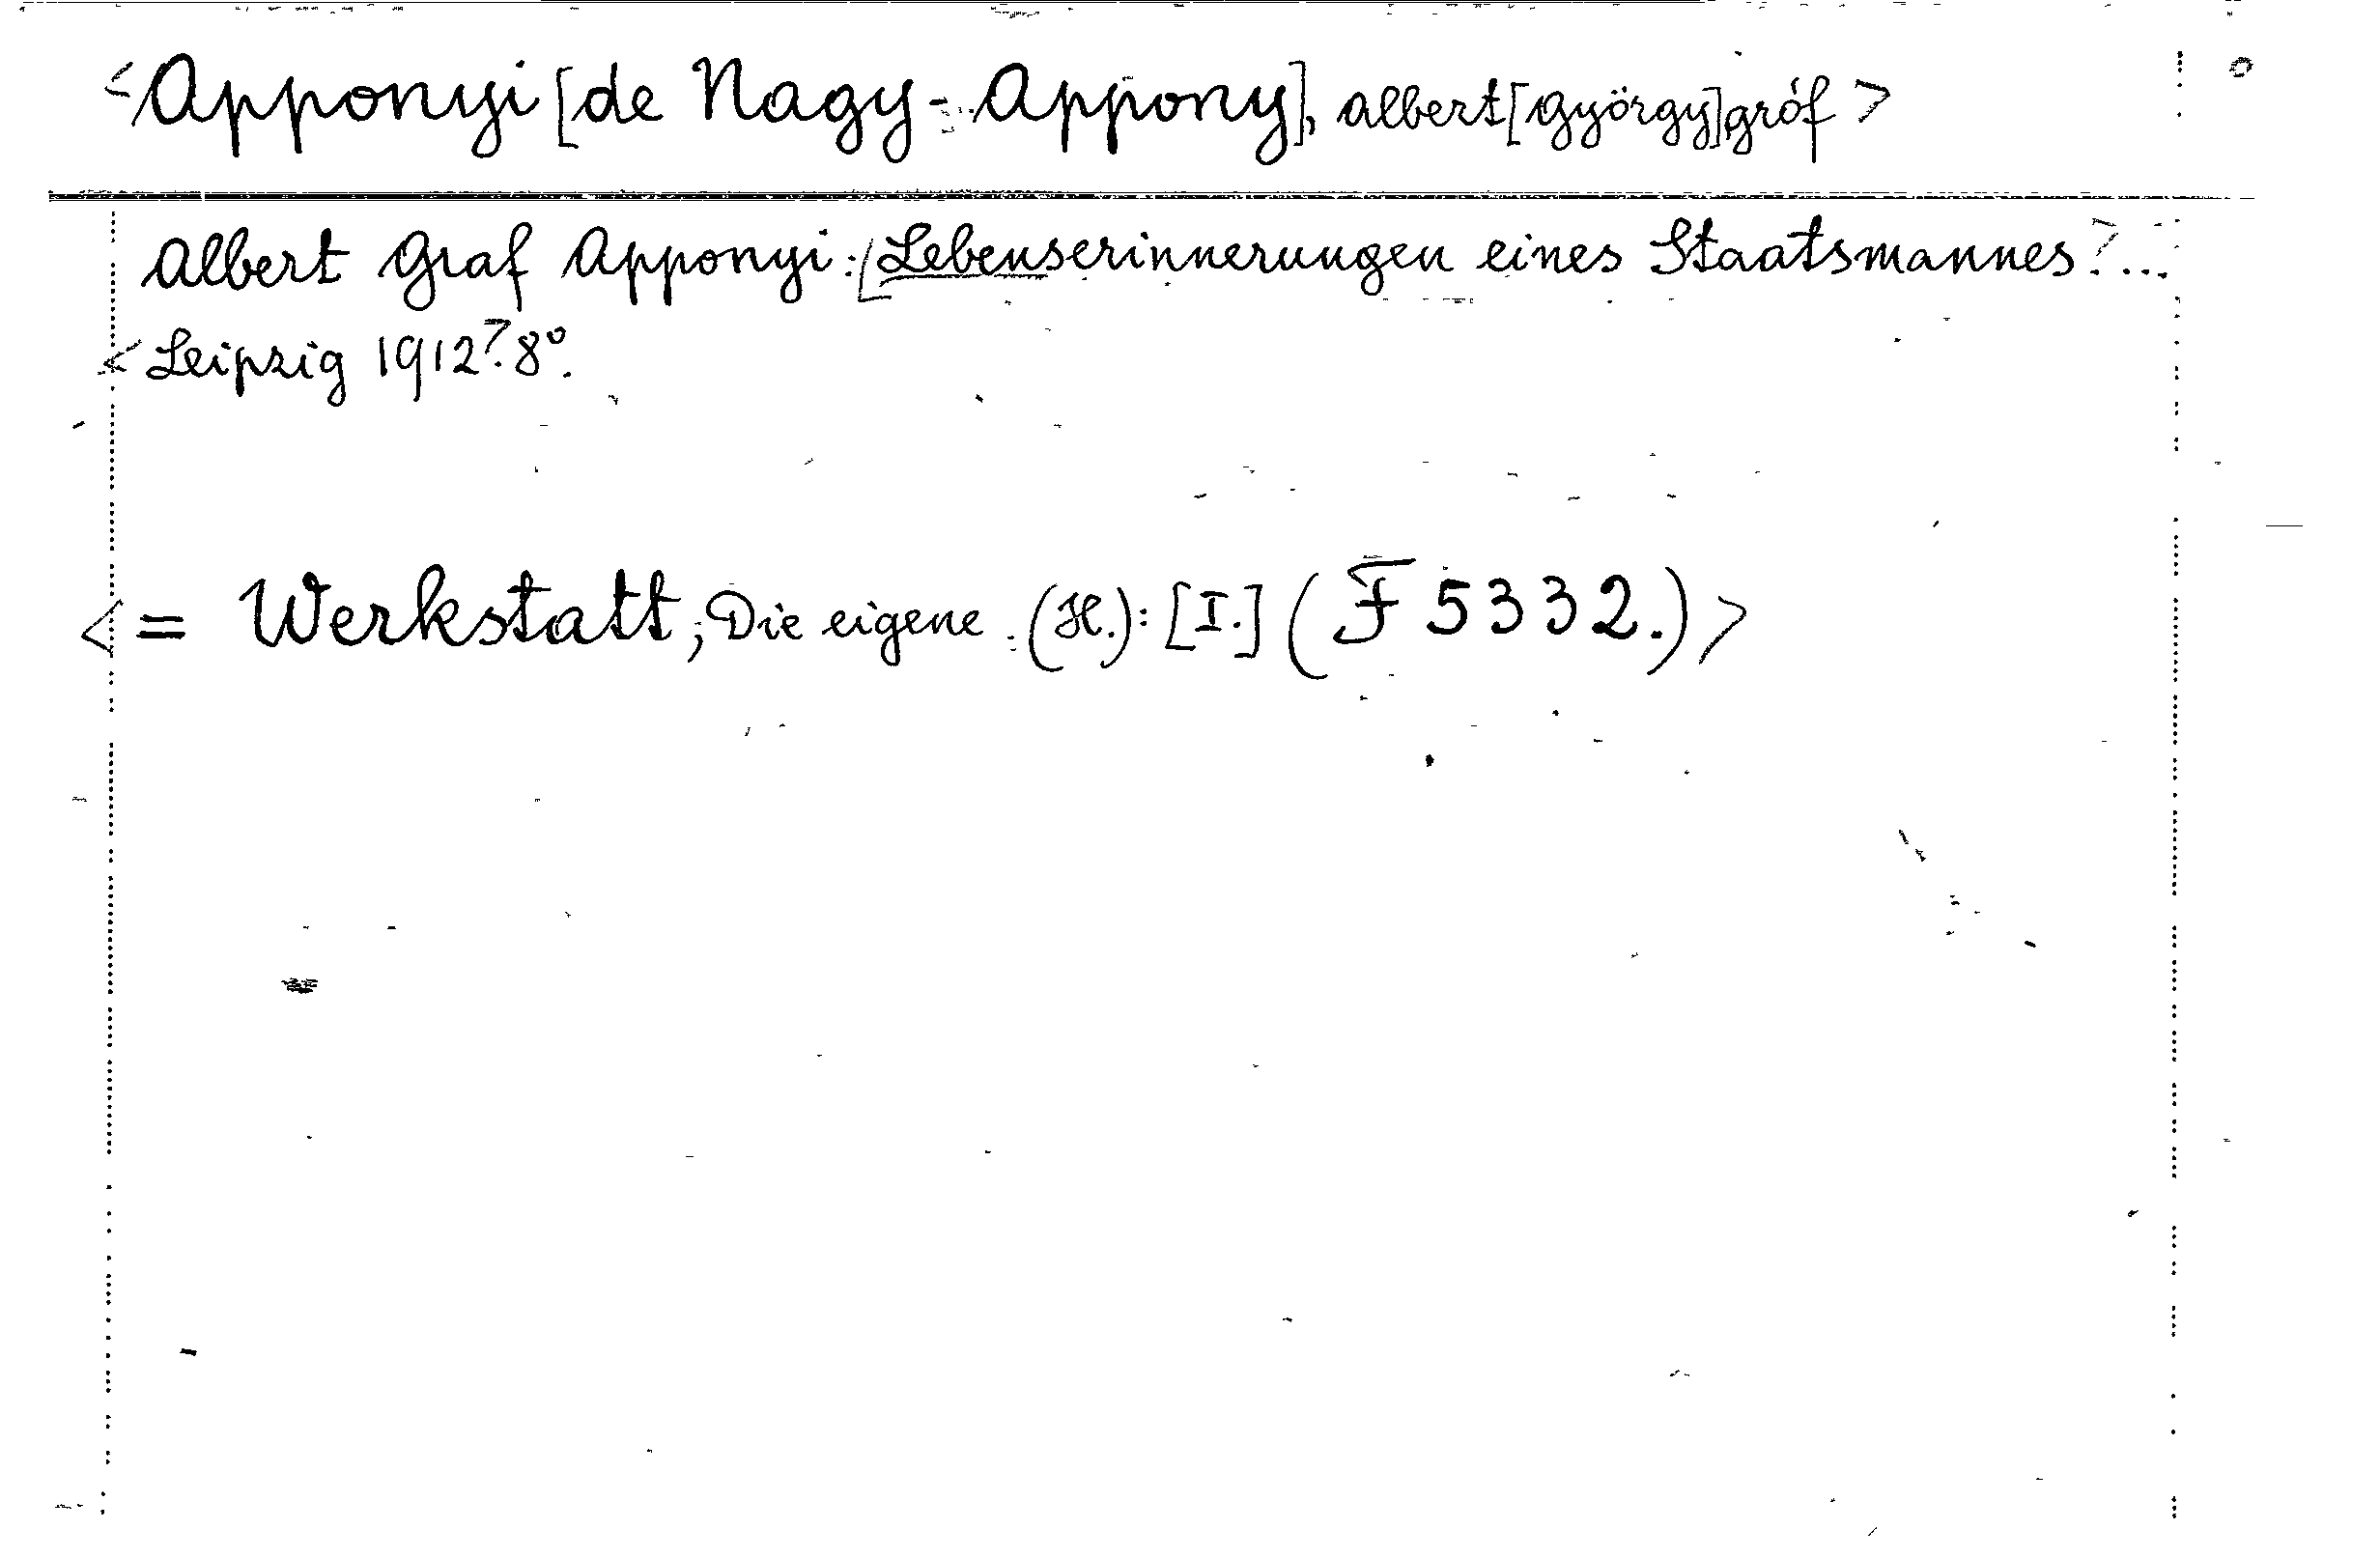 <Apponyi [de Nagy-Appony], Albert [György] gróf>
Albert Graf Apponyi: [Lebenserinnerungen eines Staatsmannes ...
<Leipzig 1912>. 8°.
<= Werkstatt, Die eigene. (H.): [I.] (F 5332.)>